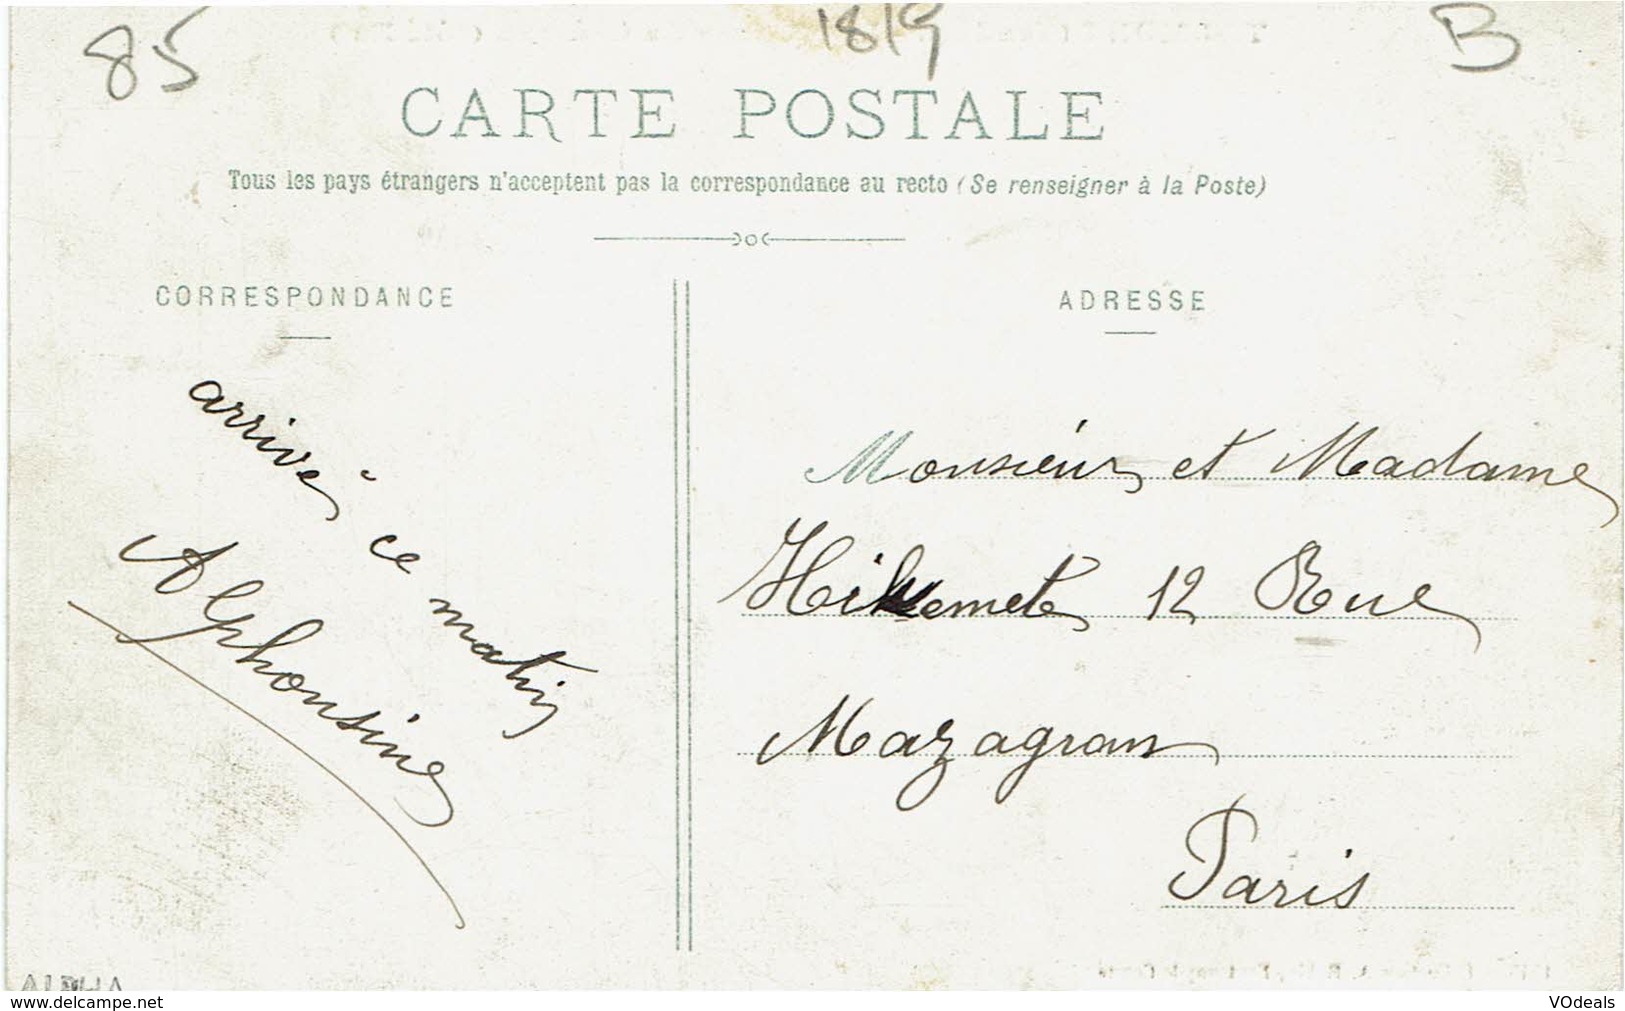 85
1819
B
CARTE POSTALE
Tous les pays étrangers n'acceptent pas la correspondance au recto (Se renseigner à la Poste)
CORRESPONDANCE
arrivé ce matin
Alphonsine
ADRESSE
Monsieur et Madame
12 Rue
Mazagran
Paris
ALPHA
www.delcampe.net
VOdeals